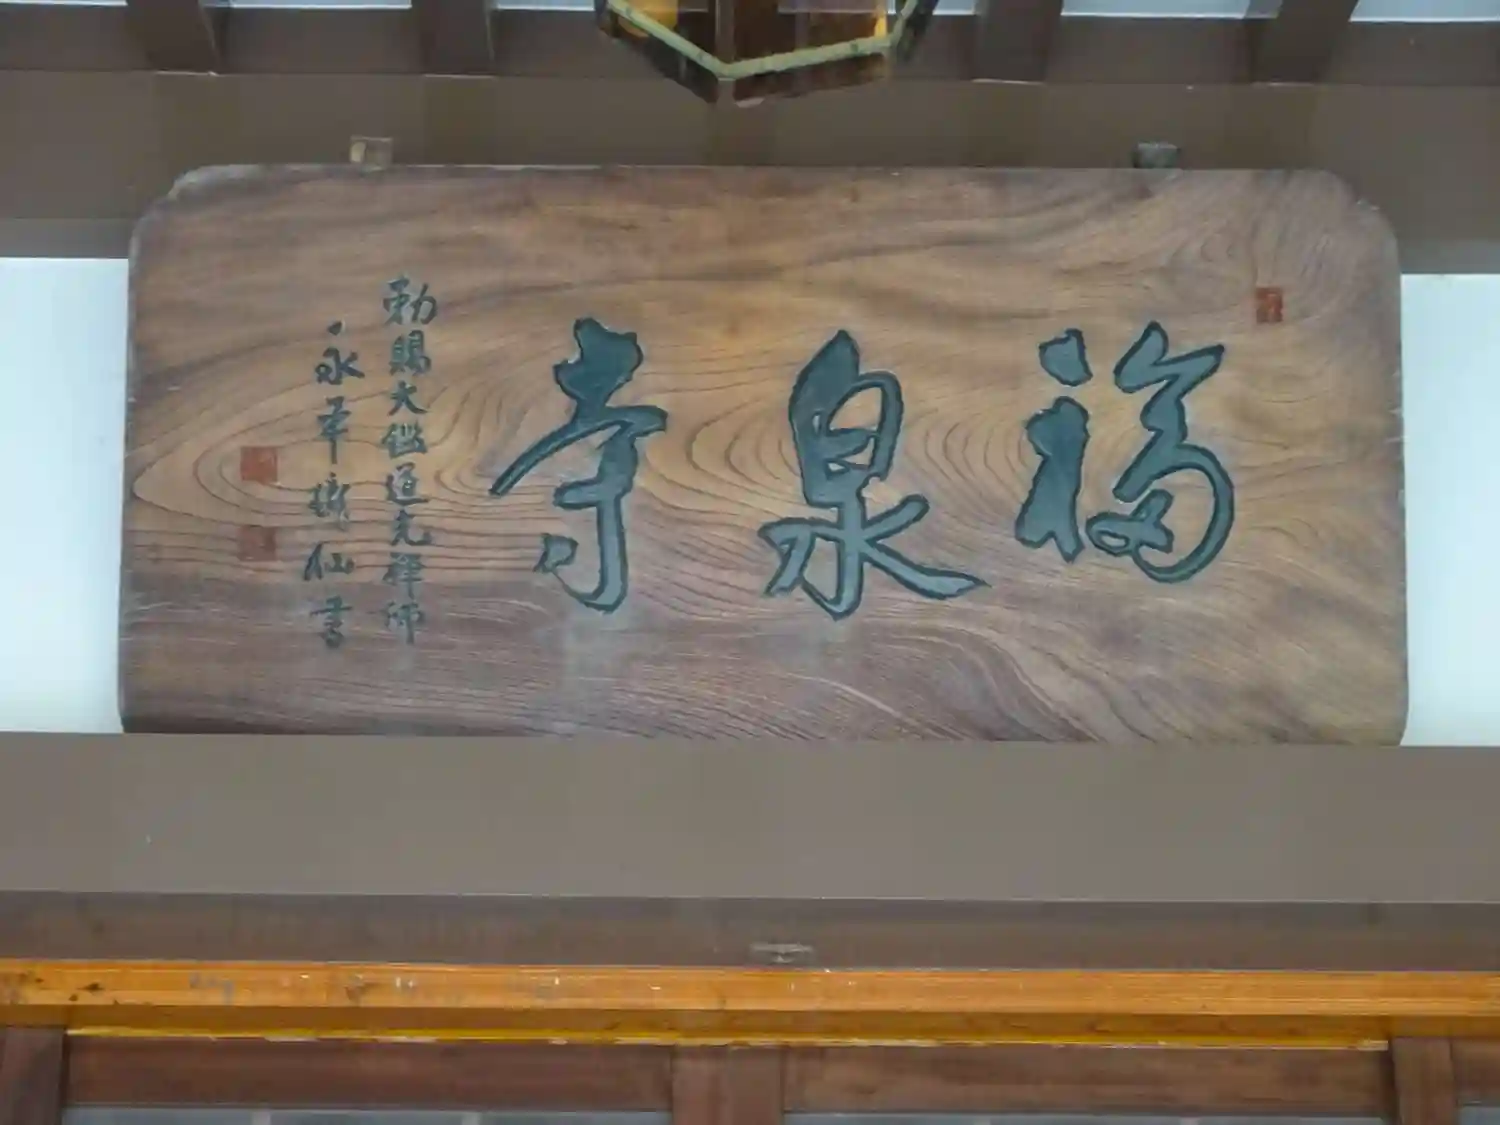 福泉寺
勅賜大鑑道光禅師
永平瓏仙書